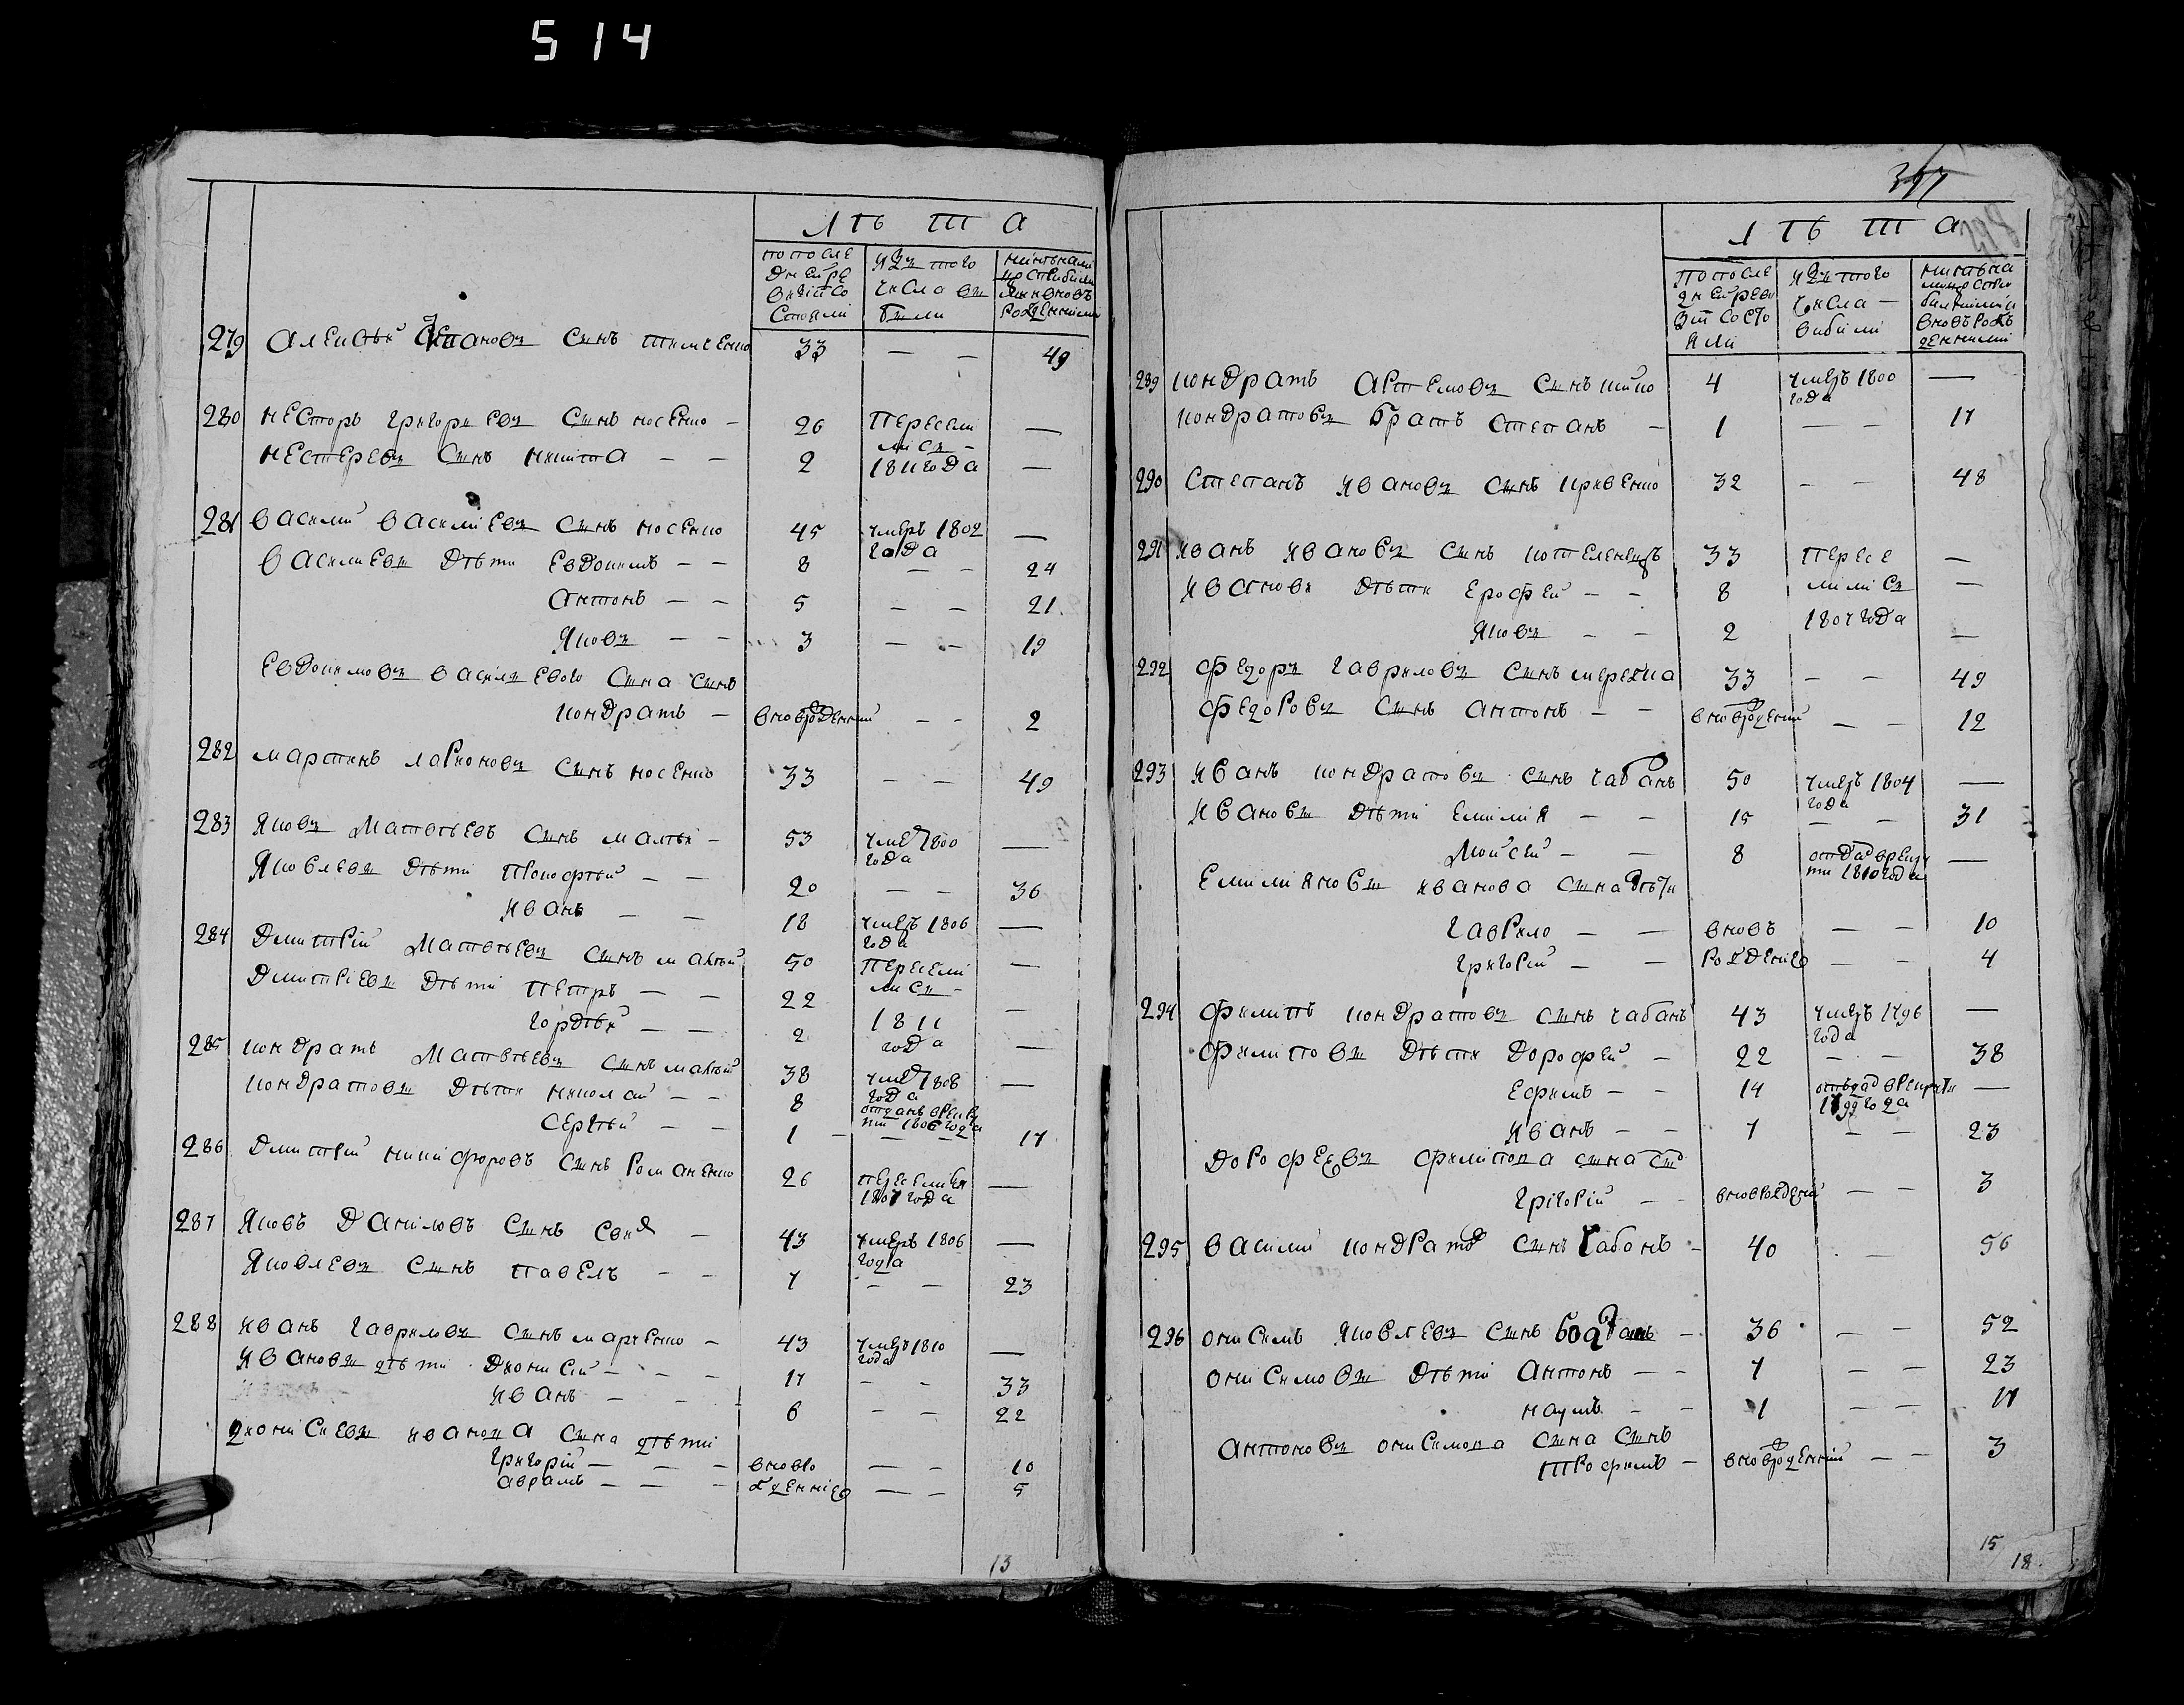 514
ЛѢТА
по после дней ре визіи со стояли
изъ того числа вы были
279 Алексѣй Степановъ сынъ тимченко 33 — — 49
280 Несторъ григориевъ сынъ носенко — 26 пересели —
лися —
Нестеревъ сынъ никита — — 2 1811 года —
281 василий василіевъ сынъ носенко 45 умеръ 1802 года —
василиевы дѣти Евдокимъ — — 8 — — 24
антонъ — — 5 — — 21
Яковъ — — 3 — — 19
Евдокимовъ василиевого сына сынъ
кондратъ — вноврожденный — — 2
282 мартинъ ларионовъ сынъ носенко 33 — — 49
283 Яковъ Матвѣевъ сынъ малѣй — 53 умер 1800 года —
Яковлевы дѣти Прокофѣй — — 20 — — 36
иванъ — — 18 умеръ 1806 года —
284 Дмитрій Матвѣевъ сынъ малѣй 50 пересели —
лися —
Дмитріевы дѣти петръ — — 22 1811 —
гордѣй — — 2 года —
285 кондратъ Матвѣевъ сынъ малѣй 38 умер 1808 года —
кондратовы дѣти николай — — 8 отданъ врекрути 1806 года
сергѣй — — 1 — — — 17
286 Дмитрій никифоровъ сынъ романенко 26 переселен 1807 года —
287 Яковъ Даниловъ сынъ свия — 43 умеръ 1806 года —
Яковлевъ сынъ павелъ — — 7 — — 23
288 иванъ гавриловъ сынъ марченко — 43 умеръ 1810 года —
ивановы дѣти Дионисій — — — 17 — — 33
иванъ — — — 6 — — 22
дионисиевы иванова сына дѣти
григорій — — — вновро — — 10
аврамъ — — — жденніе — — 5
13
ЛѢТА
по после дней реви зіи состо яли
изъ того числа — вибили
289 кондратъ артемовъ сынъ 4 умеръ 1800 года —
кондратовъ братъ степанъ — 1 — — 17
290 Степанъ ивановъ сынъ кривенко 32 — — 48
291 иванъ ивановъ сынъ котелевецъ 33 пересе —
ивановы дѣти ерофей — — 8 лилися —
Яковъ — — 2 1807 года —
292 федоръ гавриловъ сынъ мережка 33 — — 49
федоровъ сынъ антонъ — — вноврожденный — — 12
293 иванъ кондратовъ сынъ чабанъ 50 умеръ 1804 года —
ивановы дѣти емилия — — 15 — — 31
Мойсей — — 8 отдадврекру ти 1810 года —
Емилияновы иванова сына дѣти
гаврило — — вновъ — — 10
григорій — — рожденіе — — 4
294 филипъ кондратовъ сынъ чабанъ 43 умеръ 1796 года —
филиповы дѣти Дорофей — 22 — — 38
Ефимъ — — 14 отъдадврекрути 1799 года —
иванъ — — 7 — — 23
Дорофеевъ филипова сына сынъ
григорій — — вноврожденій — — 3
295 василий кондратов сынъ чабанъ — 40 — 56
296 онисимъ Яковлевъ сынъ богданъ — 36 — — 52
онисимовы дѣти антонъ — — 7 — — 23
наумъ — — 1 — — 17
антоновъ онисимова сына сынъ
трофимъ — вноврожденный — — 3
15
18